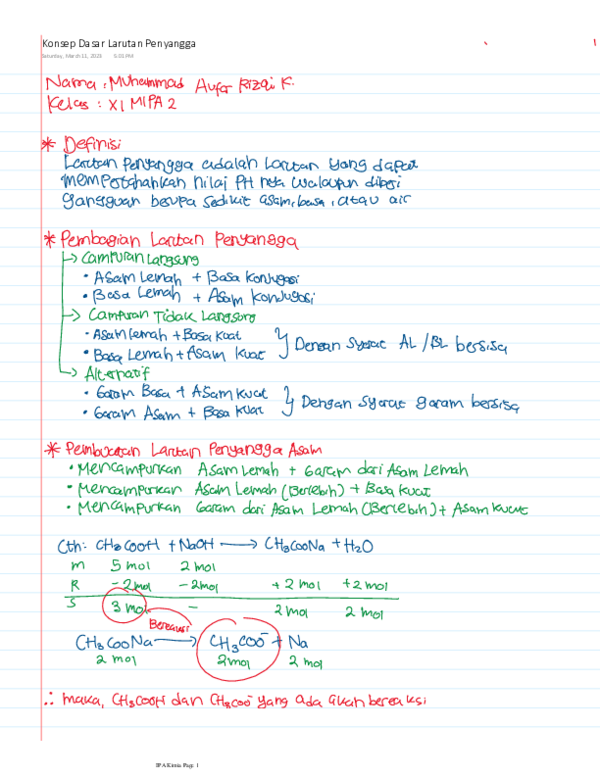 Konsep Dasar Larutan Penyangga
Saturday, March 11, 2023 5:03 PM
Nama : Muhammad Aufar Rizqi K.
Kelas : XI MIPA 2
* Definisi
Larutan Penyangga adalah Larutan yang dapat
mempertahankan nilai PH nya walaupun diberi
gangguan berupa sedikit asam, basa, atau air
* Pembagian Larutan Penyangga
→ Campuran Langsung
• Asam Lemah + Basa Konjugasi
• Basa Lemah + Asam Konjugasi
→ Campuran Tidak Langsung
• Asam Lemah + Basa Kuat
• Basa Lemah + Asam Kuat } Dengan Syarat AL / BL bersisa
→ Alternatif
• Garam Basa + Asam Kuat
• Garam Asam + Basa Kuat } Dengan Syarat garam bersisa
* Pembuatan Larutan Penyangga Asam
• Mencampurkan Asam Lemah + Garam dari Asam Lemah
• Mencampurkan Asam Lemah (Berlebih) + Basa Kuat
• Mencampurkan Garam dari Asam Lemah (Berlebih) + Asam Kuat
Cth : CH3COOH + NaOH → CH3COONa + H2O
M 5 mol 2 mol
R -2 mol -2 mol +2 mol +2 mol
S 3 mol - 2 mol 2 mol
Bereaksi
CH3COONa → CH3COO⁻ + Na
2 mol 2 mol 2 mol
∴ maka, CH3COOH dan CH3COO⁻ yang ada akan bereaksi
IPA/Kimia Page 1